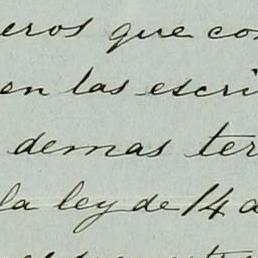 eros que con
en las escri
demas ter
la ley de 14 a